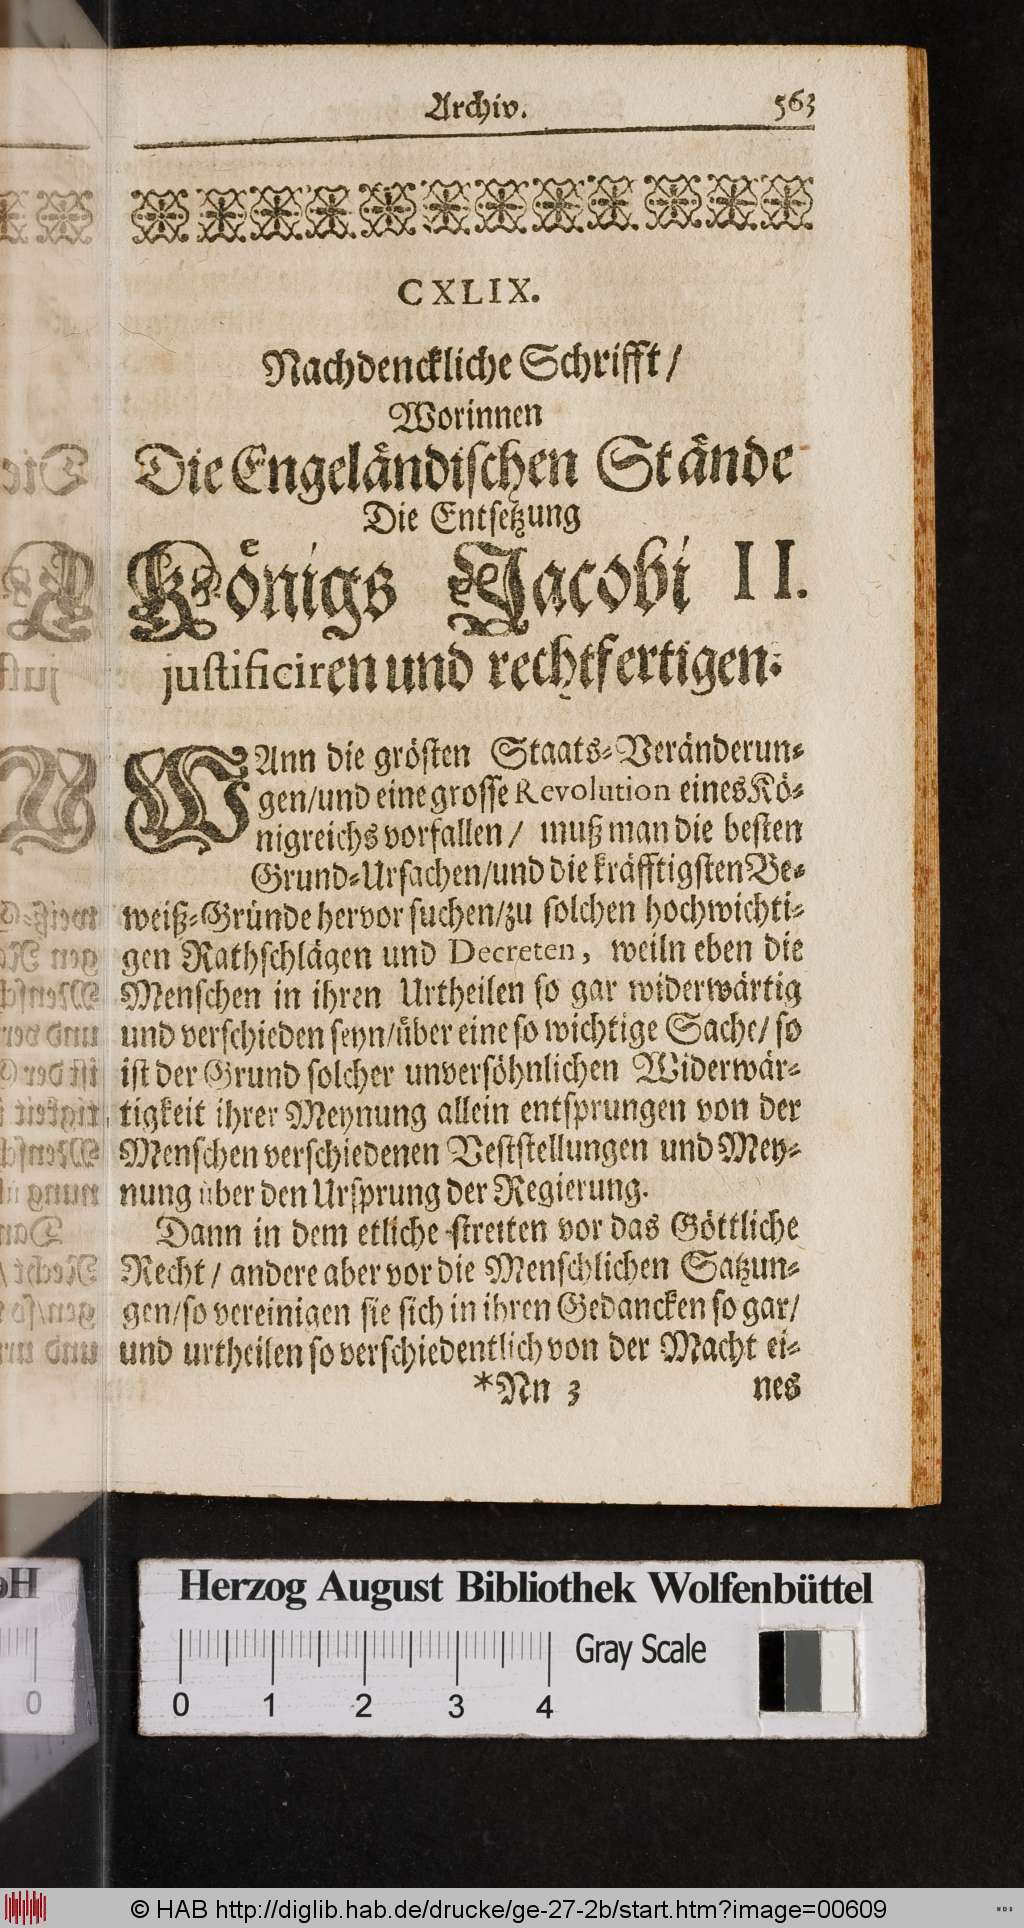 Archiv. 563
CXLIX.
Nachdenckliche Schrifft/
Worinnen
Die Engeländischen Stände
Die Entsetzung
Königs Jacobi II.
justificiren und rechtfertigen:
WAnn die grösten Staats-Veränderun-
gen/und eine grosse Revolution eines Kö-
nigreichs vorfallen/ muß man die besten
Grund-Ursachen/und die kräfftigsten Be-
weiß-Gründe hervor suchen/zu solchen hochwichti-
gen Rathschlägen und Decreten, weiln eben die
Menschen in ihren Urtheilen so gar widerwärtig
und verschieden seyn/über eine so wichtige Sache/ so
ist der Grund solcher unversöhnlichen Widerwär-
tigkeit ihrer Meynung allein entsprungen von der
Menschen verschiedenen Veststellungen und Mey-
nung über den Ursprung der Regierung.
Dann in dem etliche streiten vor das Göttliche
Recht/ andere aber vor die Menschlichen Satzun-
gen/so vereinigen sie sich in ihren Gedancken so gar/
und urtheilen so verschiedentlich von der Macht ei-
*Nn 3 nes
Herzog August Bibliothek Wolfenbüttel
Gray Scale
0 1 2 3 4
© HAB http://diglib.hab.de/drucke/ge-27-2b/start.htm?image=00609